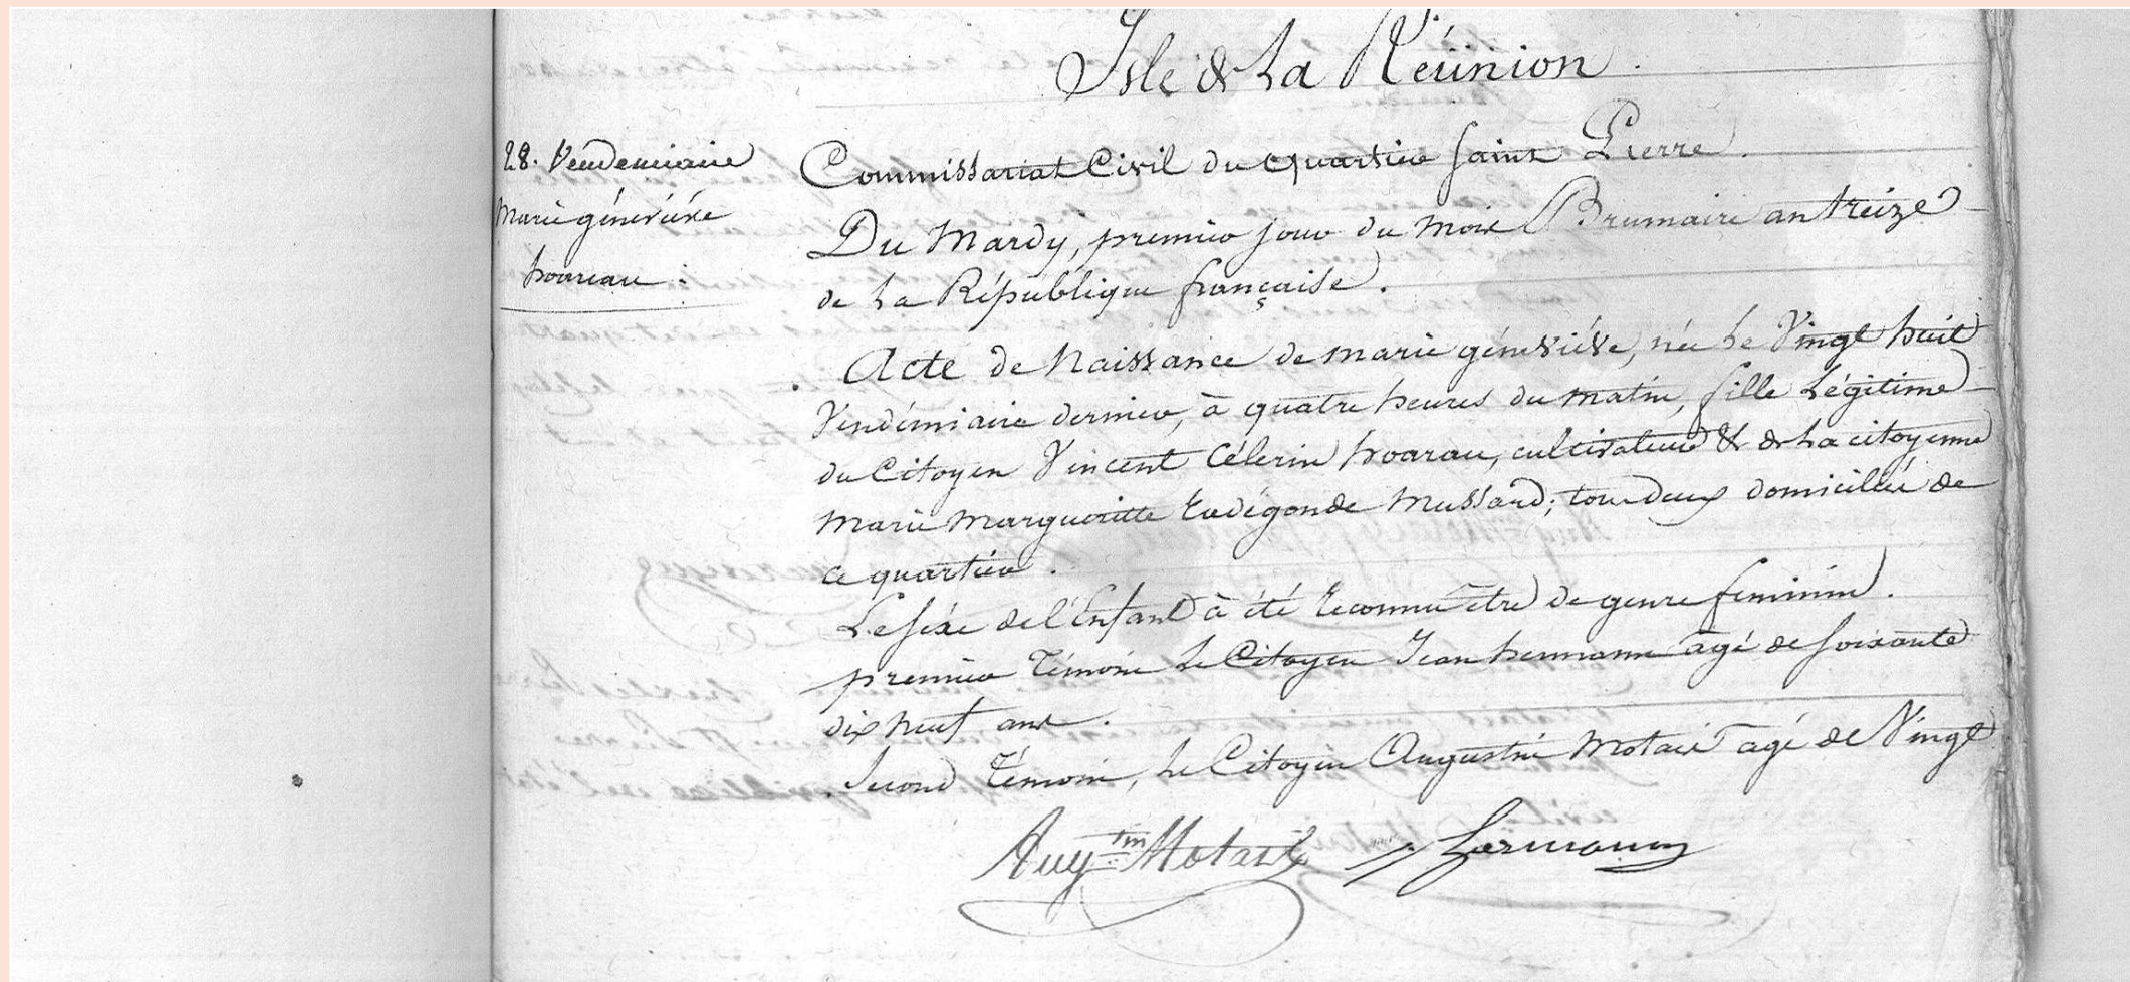 Isle de La Réünion.
28. Vendemiaire
Marie géneviéve
hoareau :
Commissariat Civil du quartier Saint Pierre.
Du Mardy, premier jour du mois Brumaire an treize
de La République française.
Acte de Naissance de marie géneviéve, née Le Vingt huit
Vendémiaire dernier, à quatre heures du matin, fille Légitime
du Citoyen Vincent Célerin hoarau, cultivateur & de La citoyenne
Marie Margueritte Radégonde Mussard; tous deux domiciliés de
ce quartier.
Le séxe de l'Enfant à été Reconnu être de genre feminin.
premier Témoin Le Citoyen Jean hermann agé de soixante
dix neuf ans.
Second Témoin, Le Citoyen Augustin Motais agé de Vingt
Aug.tin Motais hermann